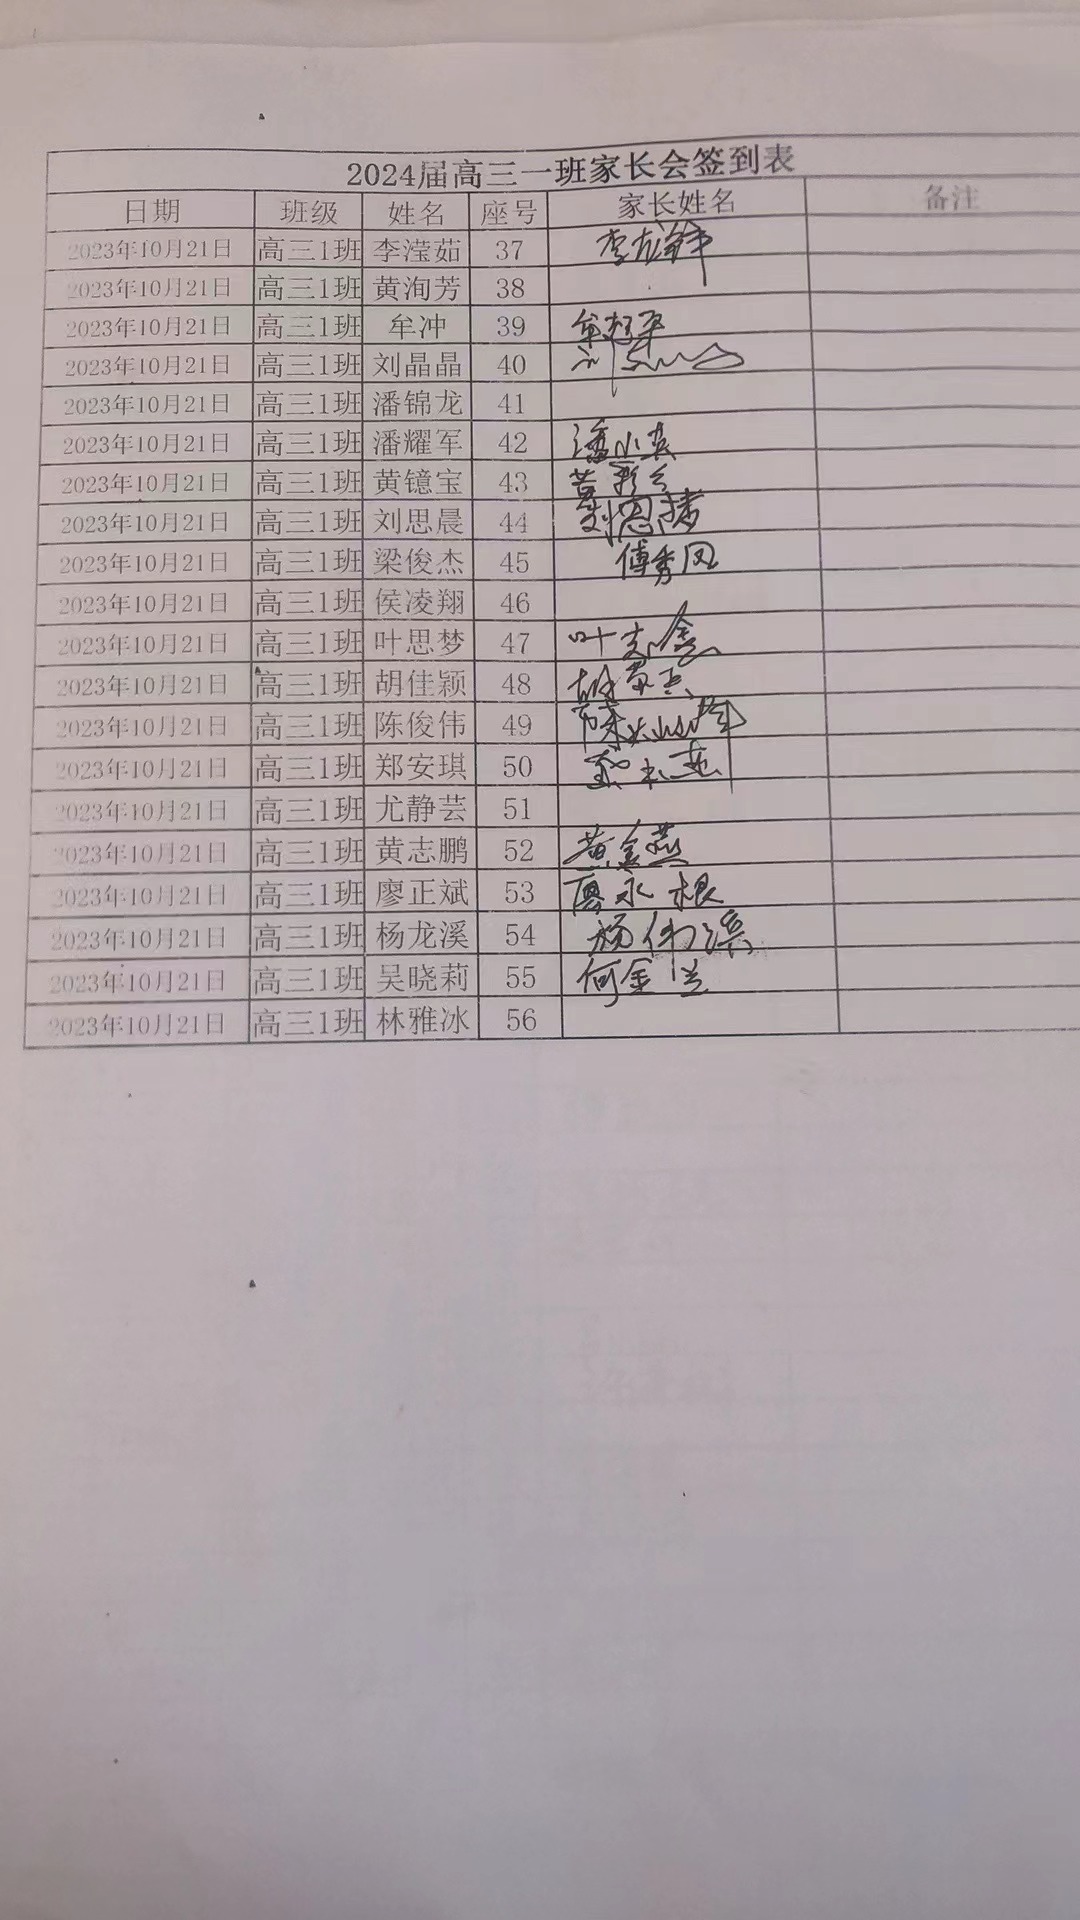 2024届高三一班家长会签到表
日期 班级 姓名 座号 家长姓名 备注
2023年10月21日 高三1班 李滢茹 37 李龙锋
2023年10月21日 高三1班 黄洵芳 38
2023年10月21日 高三1班 牟冲 39
2023年10月21日 高三1班 刘晶晶 40
2023年10月21日 高三1班 潘锦龙 41
2023年10月21日 高三1班 潘耀军 42 潘小英
2023年10月21日 高三1班 黄镱宝 43
2023年10月21日 高三1班 刘思晨 44
2023年10月21日 高三1班 梁俊杰 45 傅秀凤
2023年10月21日 高三1班 侯凌翔 46
2023年10月21日 高三1班 叶思梦 47
2023年10月21日 高三1班 胡佳颖 48
2023年10月21日 高三1班 陈俊伟 49
2023年10月21日 高三1班 郑安琪 50
2023年10月21日 高三1班 尤静芸 51
2023年10月21日 高三1班 黄志鹏 52 黄金燕
2023年10月21日 高三1班 廖正斌 53 廖永根
2023年10月21日 高三1班 杨龙溪 54 杨伟滨
2023年10月21日 高三1班 吴晓莉 55 何金兰
2023年10月21日 高三1班 林雅冰 56